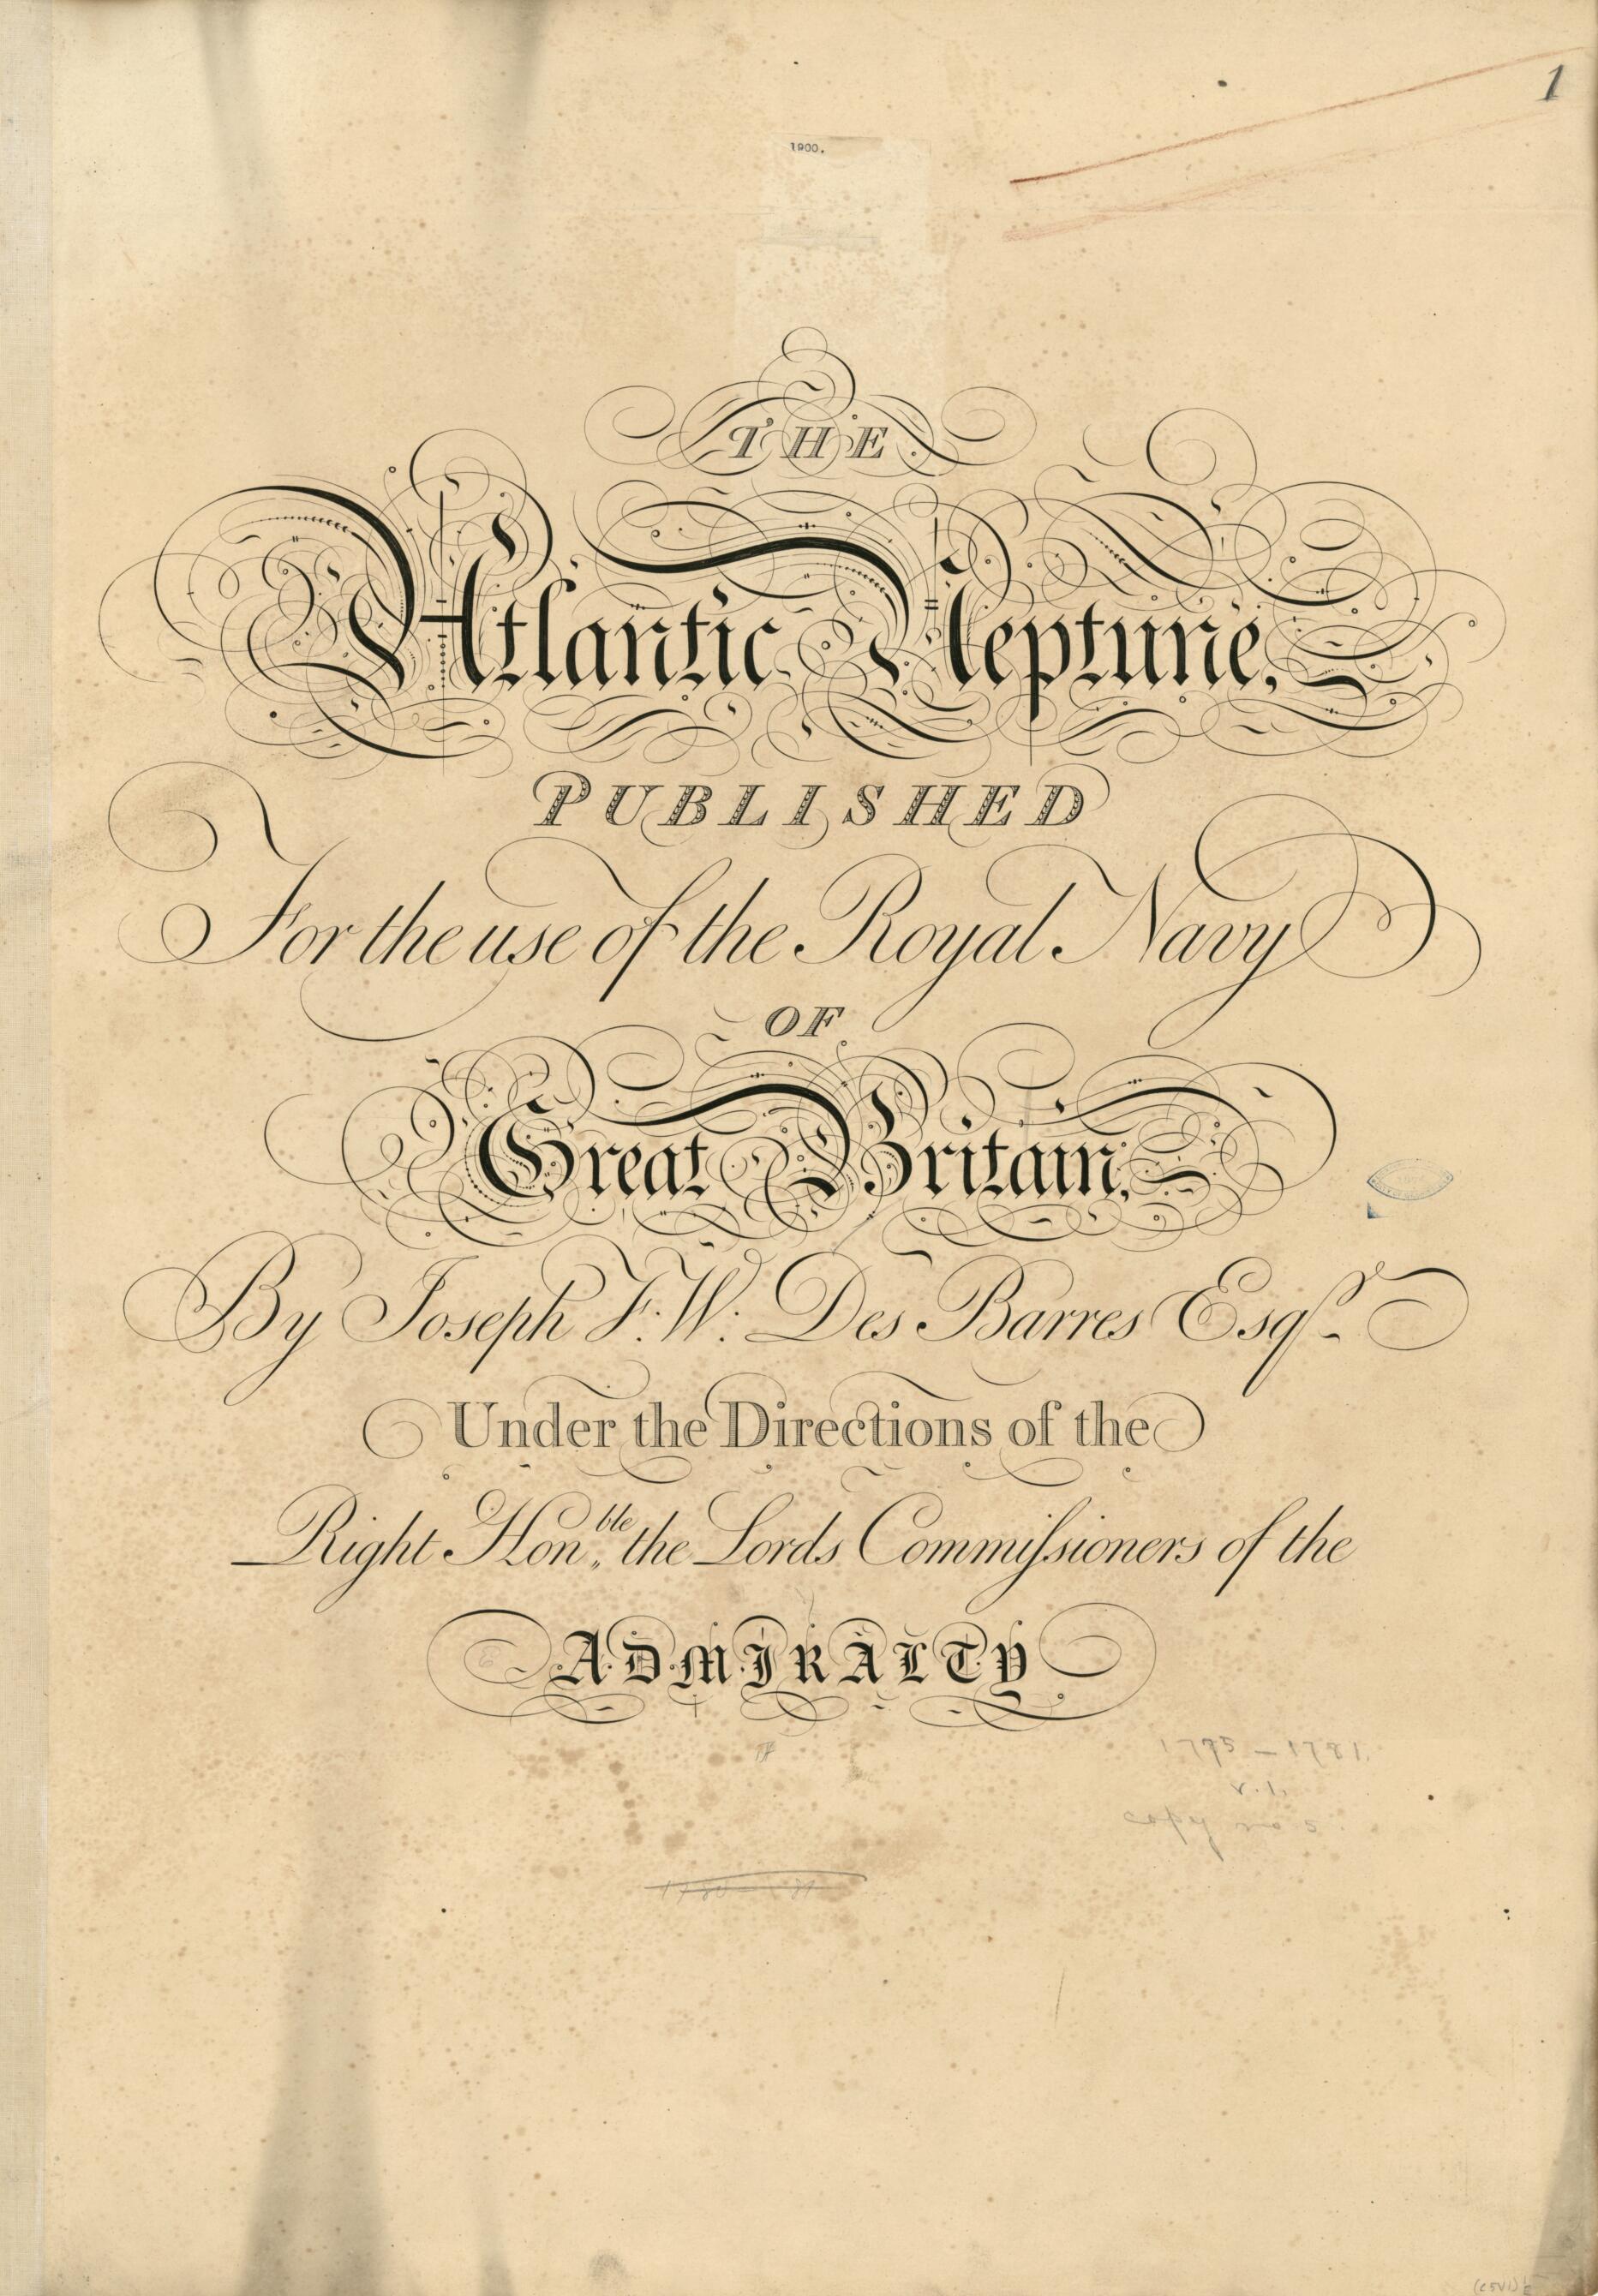 1
1900.
THE
Atlantic Neptune,
PUBLISHED
For the use of the Royal Navy
OF
Great Britain,
By Joseph F. W. Des Barres Esqr.
Under the Directions of the
Right Honble. the Lords Commiſsioners of the
ADMIRALTY
v.1.
copy no